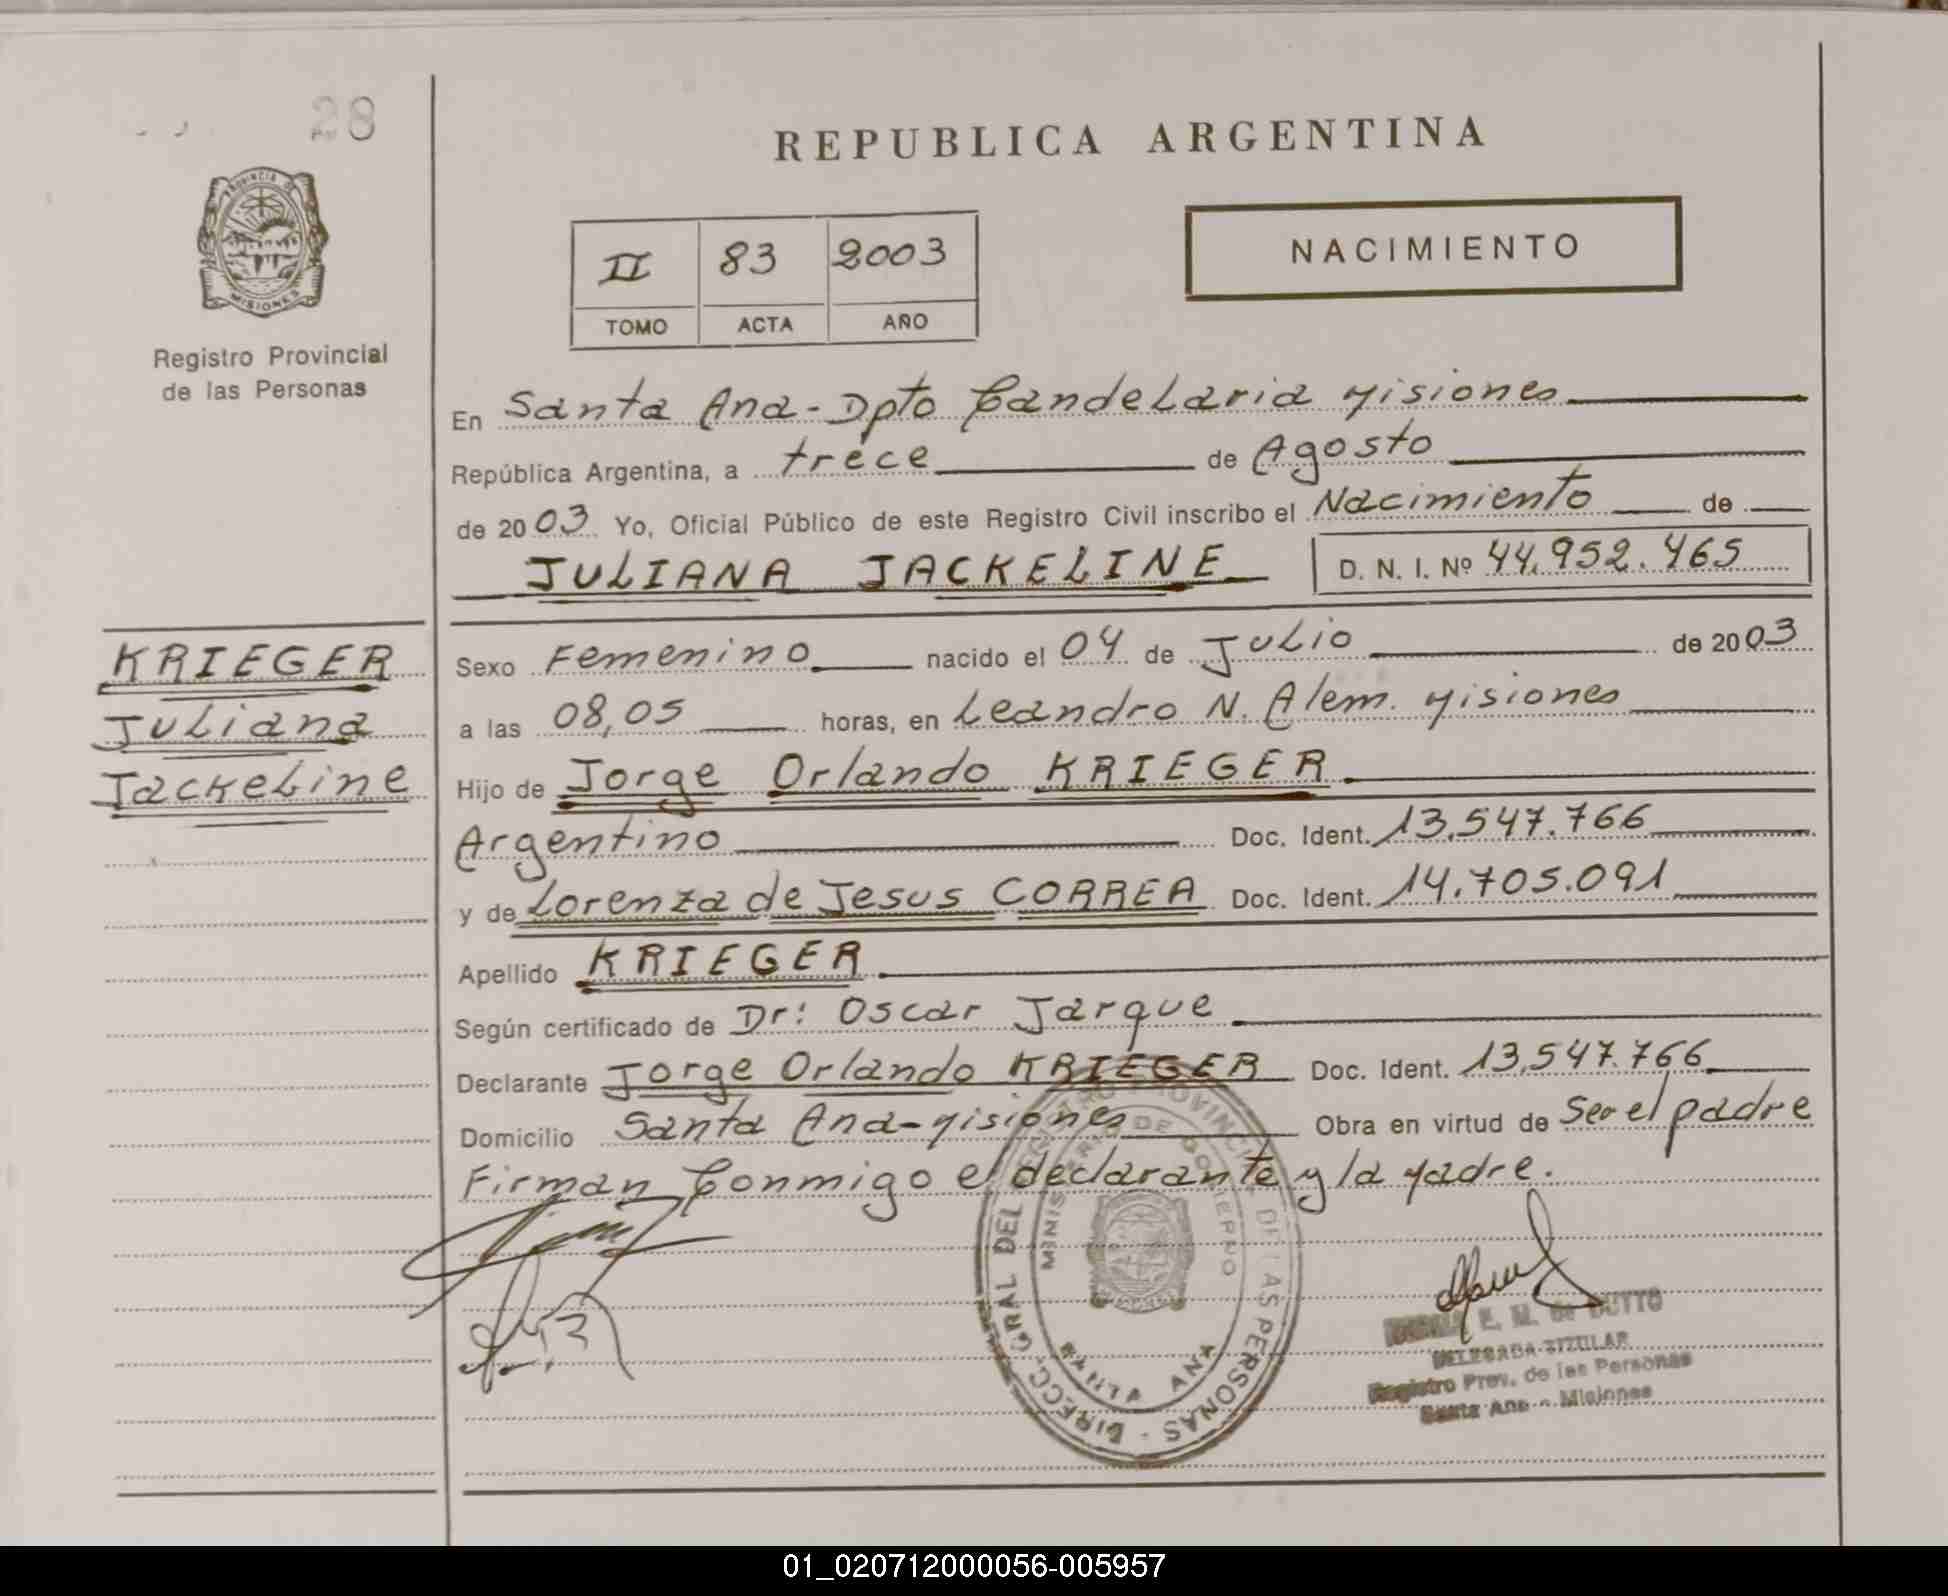 28
PROVINCIA DE
MISIONES
Registro Provincial
de las Personas
REPUBLICA ARGENTINA
II 83 2003
TOMO ACTA AÑO
NACIMIENTO
En Santa Ana - Dpto Candelaria Misiones
República Argentina, a trece de Agosto
de 2003 Yo, Oficial Público de este Registro Civil inscribo el Nacimiento de
JULIANA JACKELINE D. N. I. Nº 44.952.465
KRIEGER
Juliana
Jackeline
Sexo Femenino nacido el 04 de Julio de 2003
a las 08,05 horas, en Leandro N. Alem. Misiones
Hijo de Jorge Orlando KRIEGER
Argentino Doc. Ident. 13.547.766
y de Lorenza de Jesus CORREA Doc. Ident. 14.705.091
Apellido KRIEGER
Según certificado de Dr: Oscar Jarque
Declarante Jorge Orlando KRIEGER Doc. Ident. 13.547.766
Domicilio Santa Ana - Misiones Obra en virtud de Ser el padre
Firman Conmigo el declarante y la Madre.
DIRECC. GRAL DEL REGISTRO PROVINCIAL DE LAS PERSONAS -
MINISTERIO DE GOBIERNO
SANTA ANA
E. M. de DUTTO
DELEGADA TITULAR
Registro Prov. de las Personas
Santa Ana - Misiones
01_020712000056-005957